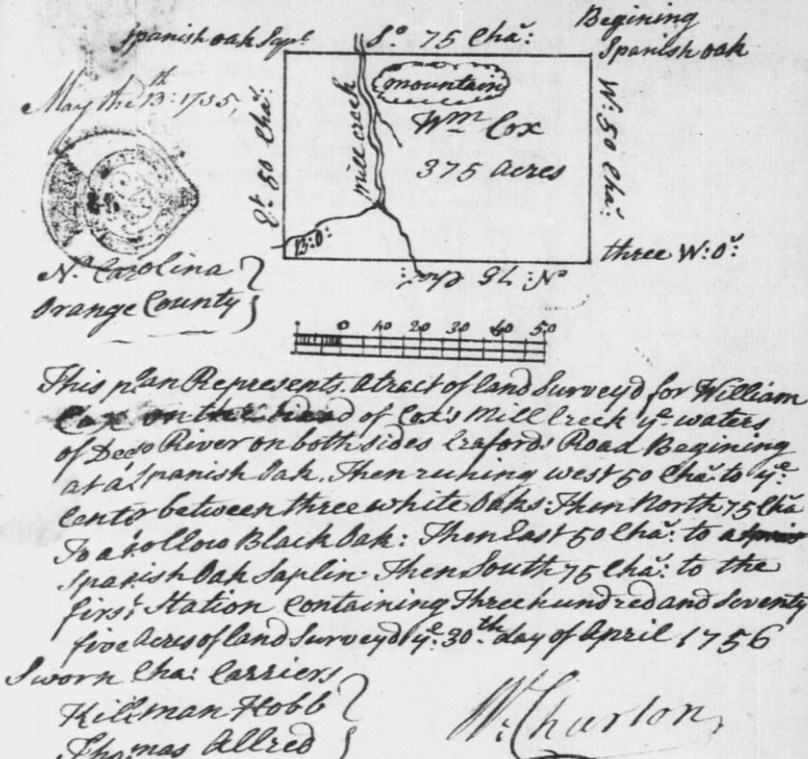 Begining
Spanish oak Sapl:
So. 75 Cha:
Spanish oak
May the 13th: 1755,
mountain
Wm Cox
375 Acres
Mill creek
Et. 50 Cha:
W: 50 Cha:
B:O:
three W:Or:
No. Carolina
Orange County
N: 75 Cha:
0 10 20 30 40 50
This plan Represents a tract of land Surveyd for William
Cox on the head of Cox's Mill Creek ye. waters
of Deep River on both sides Crafords Road Begining
at a Spanish Oak. Then runing west 50 Cha: to ye.
Center between three white Oaks Then North 75 Cha
To a hollow Black Oak: Then East 50 Cha: to a
Spanish Oak Saplin Then South 75 Cha: to the
first Station Containing Three hundred and Seventy
five Acres of land Surveyd ye. 30th day of April 1756
Sworn Cha: Carriers
Hillman Hobb
Thomas Allred
Wm: Churton,